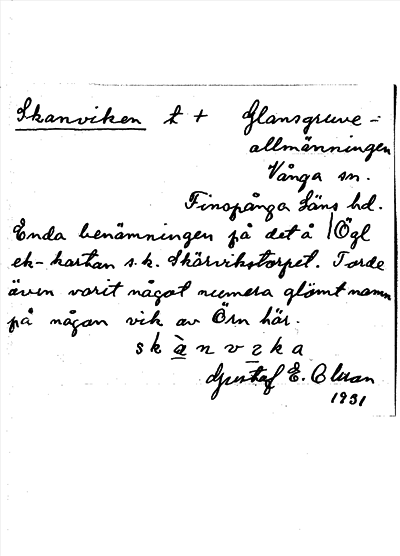 Skanviken t + Glansgruve-
allmänningen
Vånga sn.
Finspånga Läns hd.
Enda benämningen på det å Ögl
ek-kartan s.k. Skärvikstorpet. Torde
även varit något numera glömt namn
på någon vik av Örn här.
skànvika
Gustaf E. Olsson
1931